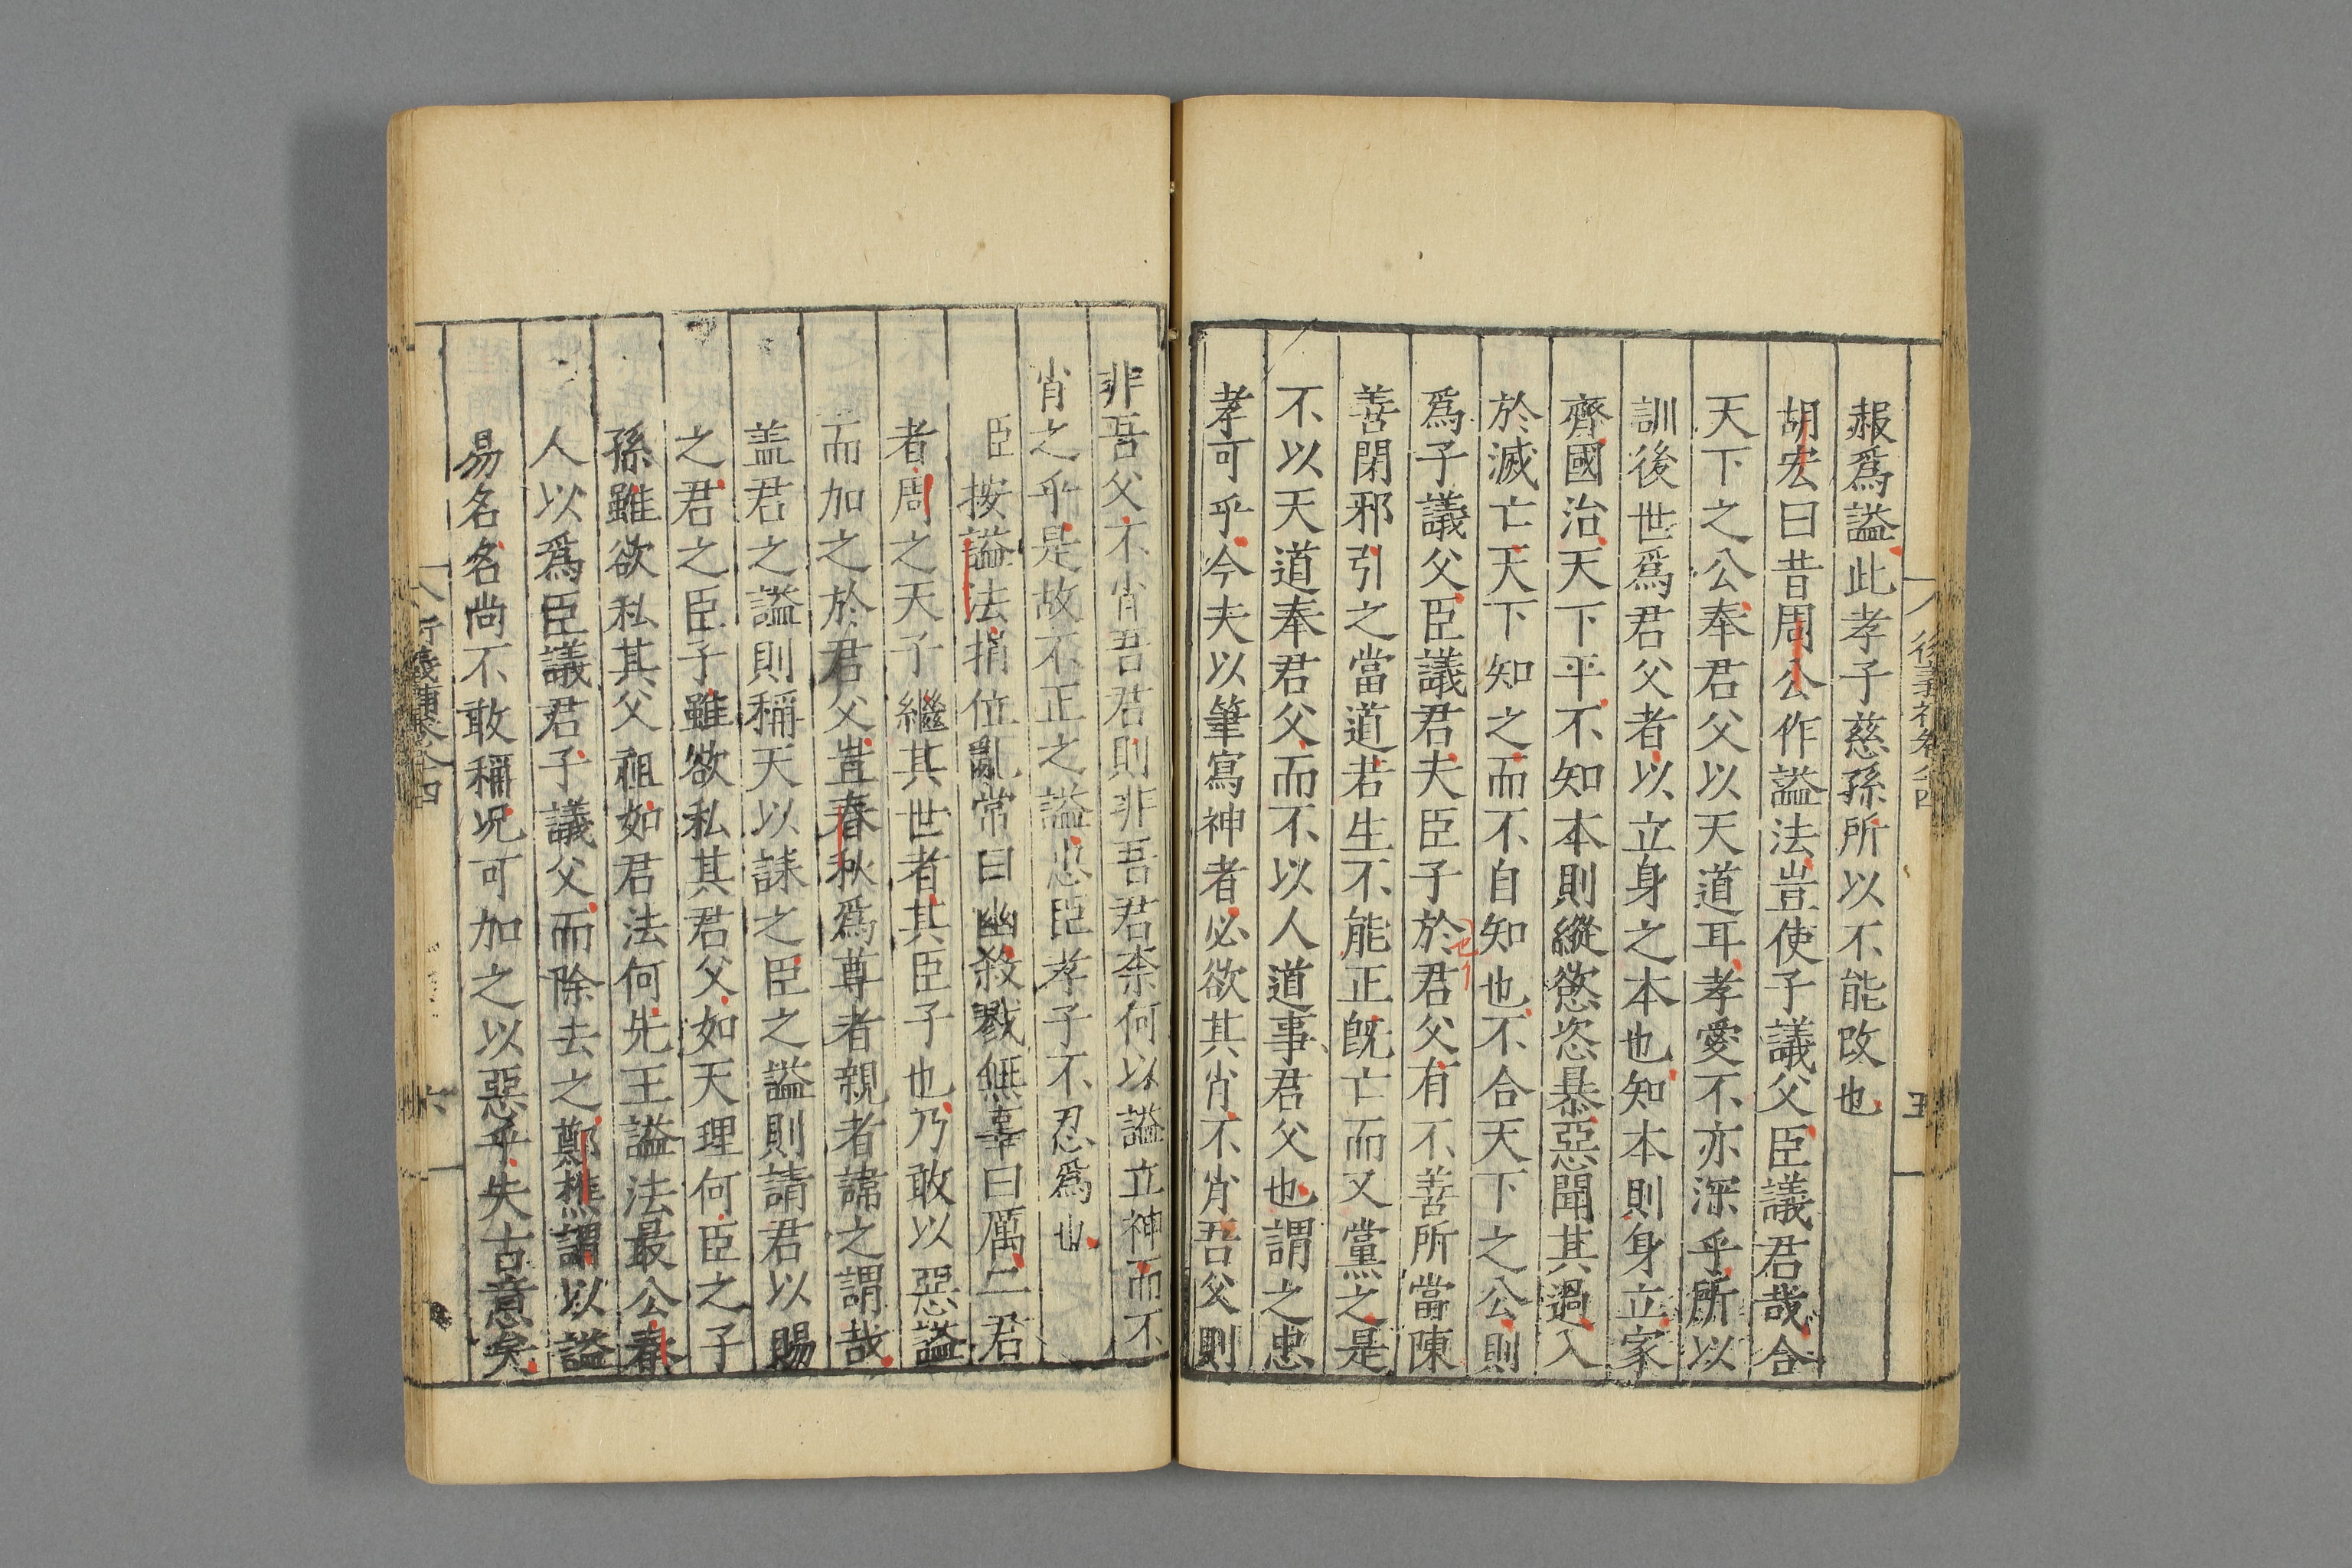 赧爲謚此孝子慈孫所以不能改也
胡宏曰昔周公作謚法豈使子議父臣議君哉合
天下之公奉君父以天道耳孝愛不亦深乎所以
訓後世爲君父者以立身之本也知本則身立家
齊國治天下平不知本則縱慾恣暴惡聞其過入
於滅亡天下知之而不自知也不合天下之公則
爲子議父臣議君夫臣子於君父有不善所當陳
善閉邪引之當道若生不能正旣亡而又黨之是
不以天道奉君父而不以人道事君父也謂之忠
孝可乎今夫以筆寫神者必欲其肖不肖吾父則
非吾父不肖吾君則非吾君柰何以謚立神而不
肖之乎是故不正之謚忠臣孝子不忍爲也
臣按謚法捎位亂常曰幽殺戮無辜曰厲二君
者周之天子繼其世者其臣子也乃敢以惡謚
而加之於君父豈春秋爲尊者親者諱之謂哉
盖君之謚則稱天以誄之臣之謚則請君以賜
之君之臣子雖欲私其君父如天理何臣之子
孫雖欲私其父祖如君法何先王謚法最公春
人以爲臣議君子議父而除去之鄭樵謂以謚
易名名尚不敢稱况可加之以惡乎失古意矣
五